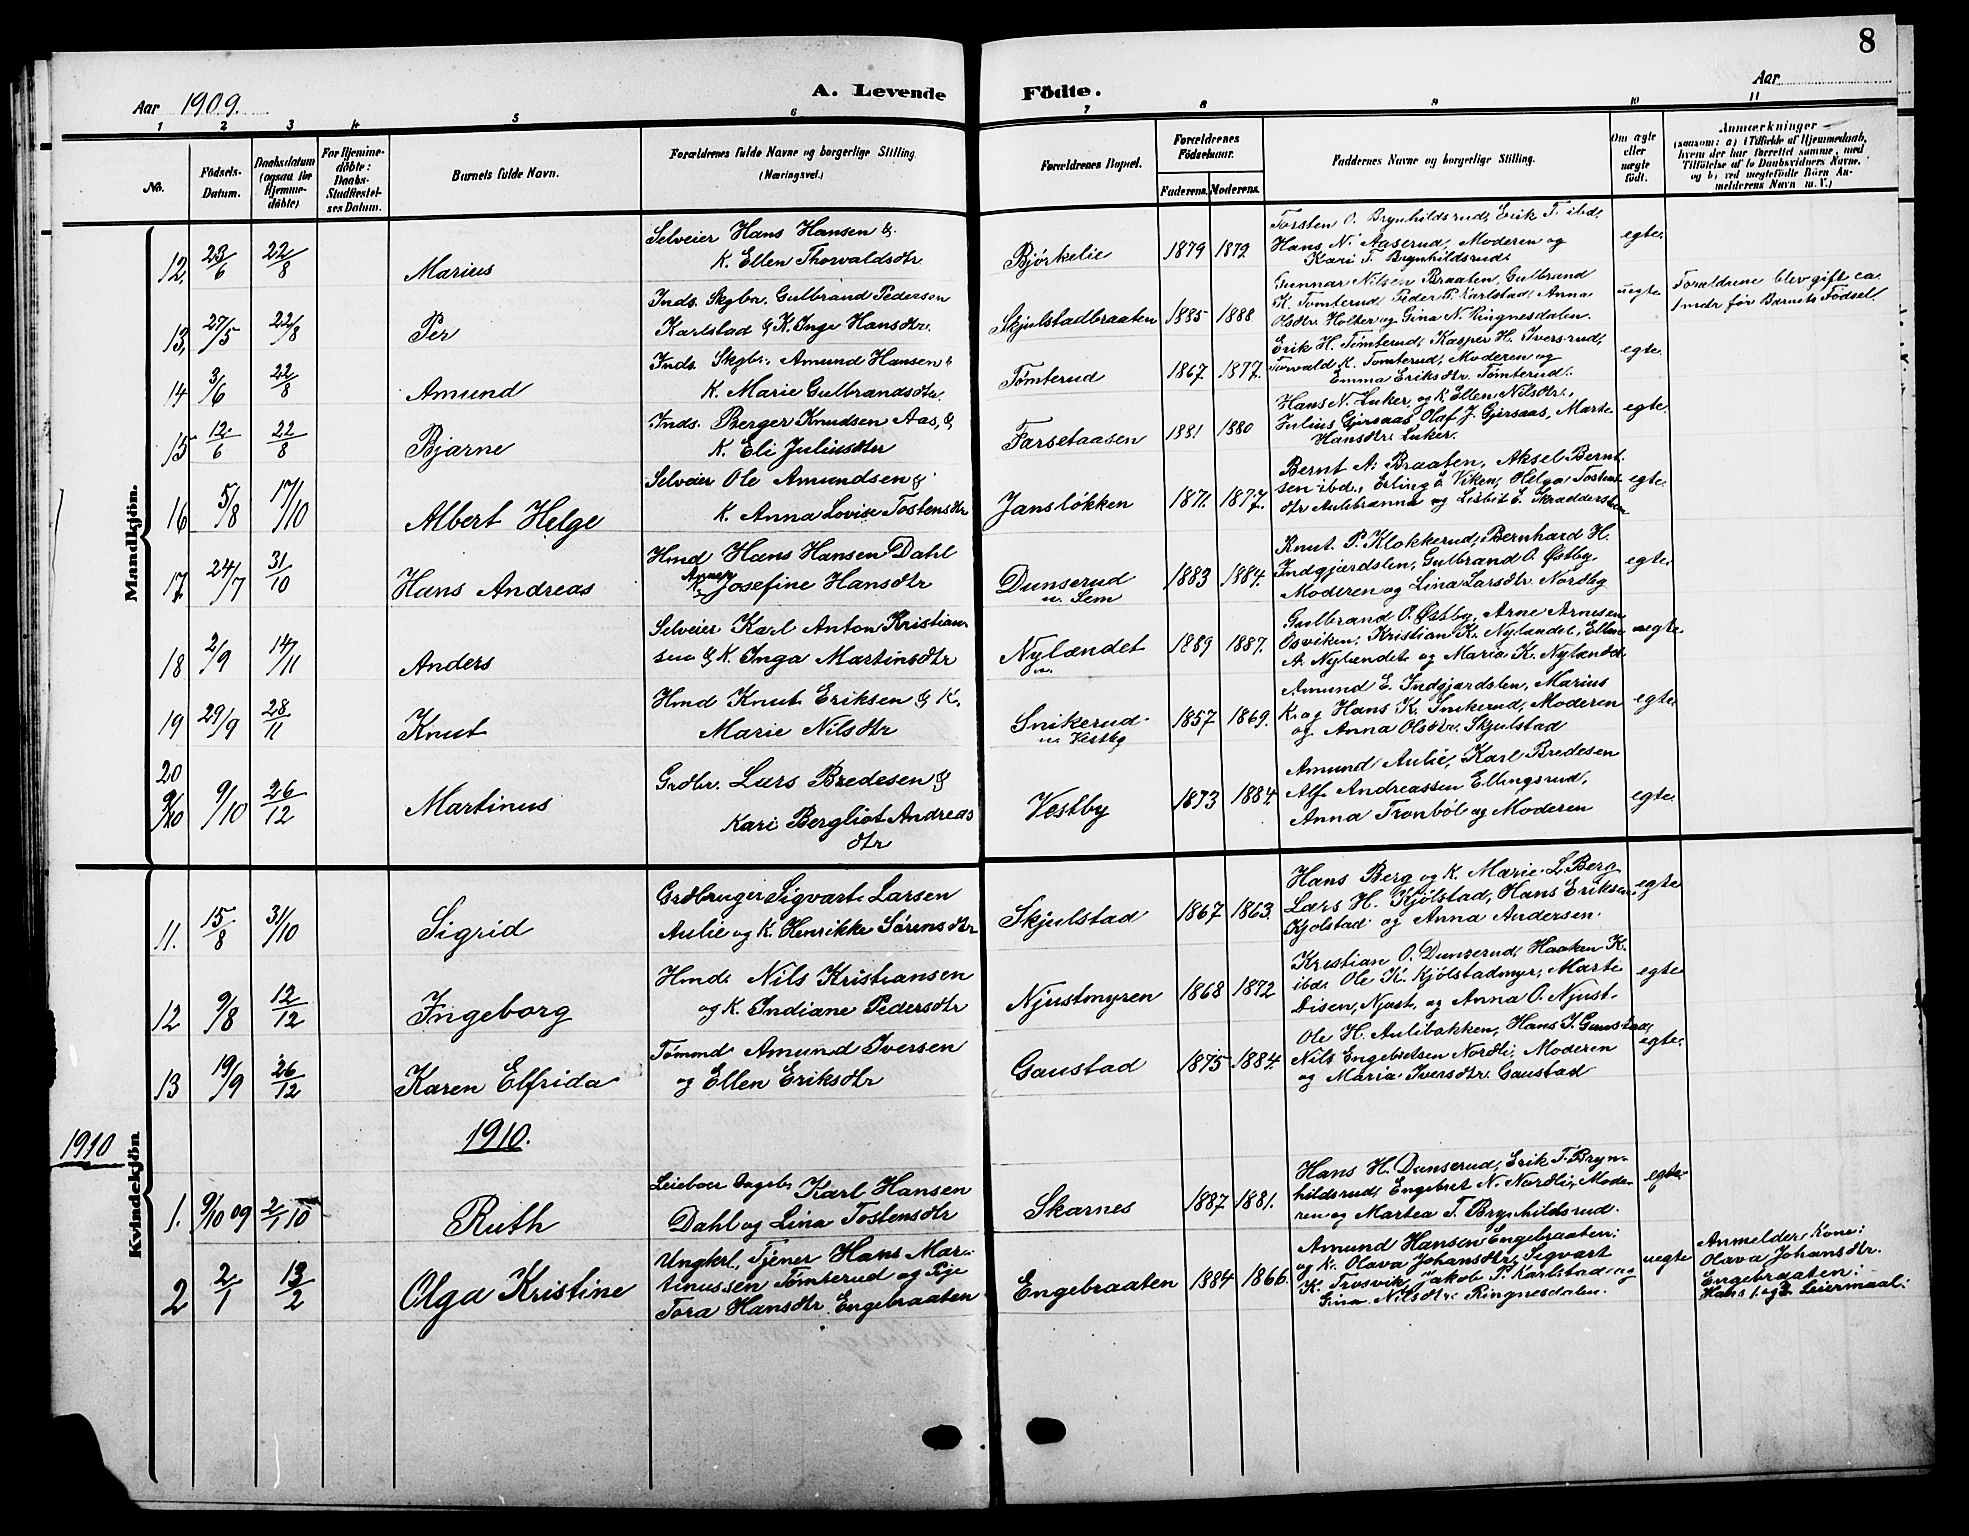 8
Aar 1909.
A. Levende Födte.
Aar
1 2 3 4 5 6 7 8 9 10 11
No.
Födsels-Datum.
Daabsdatum (ogsaa for Hjemmedöbte)
For Hjemmedöbte: Daabs-Stadfæstelses Datum.
Barnets fulde Navn.
Forældrenes fulde Navne og borgerlige Stilling (Næringsvei.)
Forældrenes Bopæl.
Forældrenes Födselsaar.
Faderens. Moderens.
Faddernes Navne og borgerlige Stilling.
Om ægte eller uægte födt.
Anmærkninger (saasom: a) i Tilfælde af Hjemmedaab, hvem der har forrettet samme, med Tilföielse af to Daabsvidners Navne, og b) ved uægtefödte Börn Anmelderens Navn m. V.)
Mandkjön.
12, 23/6 22/8 Marius
Selveier Hans Hansen &
K. Ellen Thorvaldsdtr
Bjørkelie 1879 1879
Torsten O. Brynhildsrud, Erik T. ibd,
Hans N. Aaserud, Moderen og
Kari T. Brynhildsrud.
egte.
13, 27/5 22/8 Per
Inds. Skgbr. Gulbrand Pedersen
Karlstad & K. Inge Hansdtr.
Skjulstadbraaten 1885 1888
Gunnar Nilsen Braaten, Gulbrand
K. Tomterud, Peder P. Karlstad, Anna
Olsdtr. Holter og Gina N. Ringnesdalen.
uegte
Foraldrene blev gift ca
1 mdr. før Barnets Födsel
14 3/6 22/8 Amund
Inds. Skgbr. Amund Hansen &
K. Marie Gulbrandsdtr.
Tømterud 1867 1877.
Erik H. Tømterud, Kasper H. Iversrud,
Torvald K. Tomterud, Moderen og
Emma Eriksdtr. Tømterud.
egte.
15 12/6 22/8 Bjarne
Inds. Berger Knudsen Aas, &
K. Eli Juliusdtr
Farsetaasen 1881 1880
Hans N. Luker, og K. Ellen Nilsdtr.,
Julius Gjersaas, Olaf J. Gjersaas, Marte
Hansdtr. Luker.
egte.
16 5/8 17/10 Albert Helge
Selveier Ole Amundsen &
K. Anna Lovise Tostensdtr
Jansløkken 1871. 1877.
Bernt A. Braaten, Aksel Bernt
sen ibd., Erling Viken, Helga Tostens
dtr Aulibrænna og Lisbet E. Skrædderstuen
egte.
17. 24/7 31/10 Hans Andreas
Hmd Hans Hansen Dahl
K. Anna Josefine Hansdtr
Dunserud
u. Sem
1883 1884.
Knut P. Klokkerud, Bernhard H.
Indgjerdslen, Gulbrand O. Østby
Moderen og Lina Larsdtr. Nordby
egte.
18 2/9 14/11 Anders
Selveier Karl Anton Kristian-
sen & K. Inga Martinsdtr
Nylændet 1889 1887.
Gulbrand O. Østby, Arne Arnesen
Osviken, Kristian K. Nylændet, Ellen
A. Nylændet og Maria K. Nylændet.
uegte.
19 29/9 28/11 Knut
Hmd Knut Eriksen & K.
Marie Nilsdtr
Snikerud
u. Vestby
1857 1869.
Amund E. Indgjærdslen, Marius
K. og Hans K. Snikerud, Moderen
og Anna Olsdtr. Skjulstad
egte.
20
9/10 9/10 26/12 Martinus
Grdbr. Lars Bredesen &
Kari Bergliot Andreas
dtr
Vestby 1873 1884.
Amund Aulie, Karl Bredesen
Alf Andreassen Ellingsrud,
Anna Tronböl og Moderen
egte.
11. 15/8 31/10 Sigrid
Grdbruger Sigvart Larsen
Aulie og K. Henrikke Sørensdtr
Skjulstad 1867 1863.
Hans Berg og K. Marie L. Berg
Lars H. Kjølstad, Hans Eriksen
Kjolstad og Anna Andersen.
egte
12 9/8 12/12 Ingeborg
Hmd. Nils Kristiansen
og K. Indiane Pedersdtr
Njustmyren 1868 1872
Kristian O. Dunserud, Haaken K.
ibd. Ole K. Kjölstadmyr, Marte
Disen, Njust, og Anna O. Njust.
egte
13 19/9 26/12 Karen Elfrida
Tømmd Amund Iversen
og Ellen Eriksdtr
Gaustad 1875 1884.
Ole H. Aulibakken, Hans I. Gaustad,
Nils Engebretsen Nordli, Moderen
og Maria Iversdtr. Gaustad
egte.
1910
Kvindekjön
1910.
1. 9/10 09 2/1 10 Ruth
Leieboer Dagarb. Karl Hansen
Dahl og Lina Tostensdtr
Skarnes 1887 1881.
Hans H. Dunserud, Erik T. Bryn-
hildsrud, Engebret N. Nordli, Mode-
ren og Martea T. Brynhildsrud.
egte
2 2/1 13/2 Olga Kristine
Ungkrl. Tjener Hans Mar-
tinussen Tømterud og Pige
Tora Hansdtr. Engebraaten
Engebraaten 1884 1866.
Amund Hansen Engebraaten,
og K. Olava Johansdtr, Sigvart
K. Trosvik, Jakob P. Karlstad og
Gina Nilsdtr. Ringnesdalen.
uegte
Anmelder, Kone:
Olava Johansdtr.
Engebraaten:
Hans 1. og 2. Leiermaal.